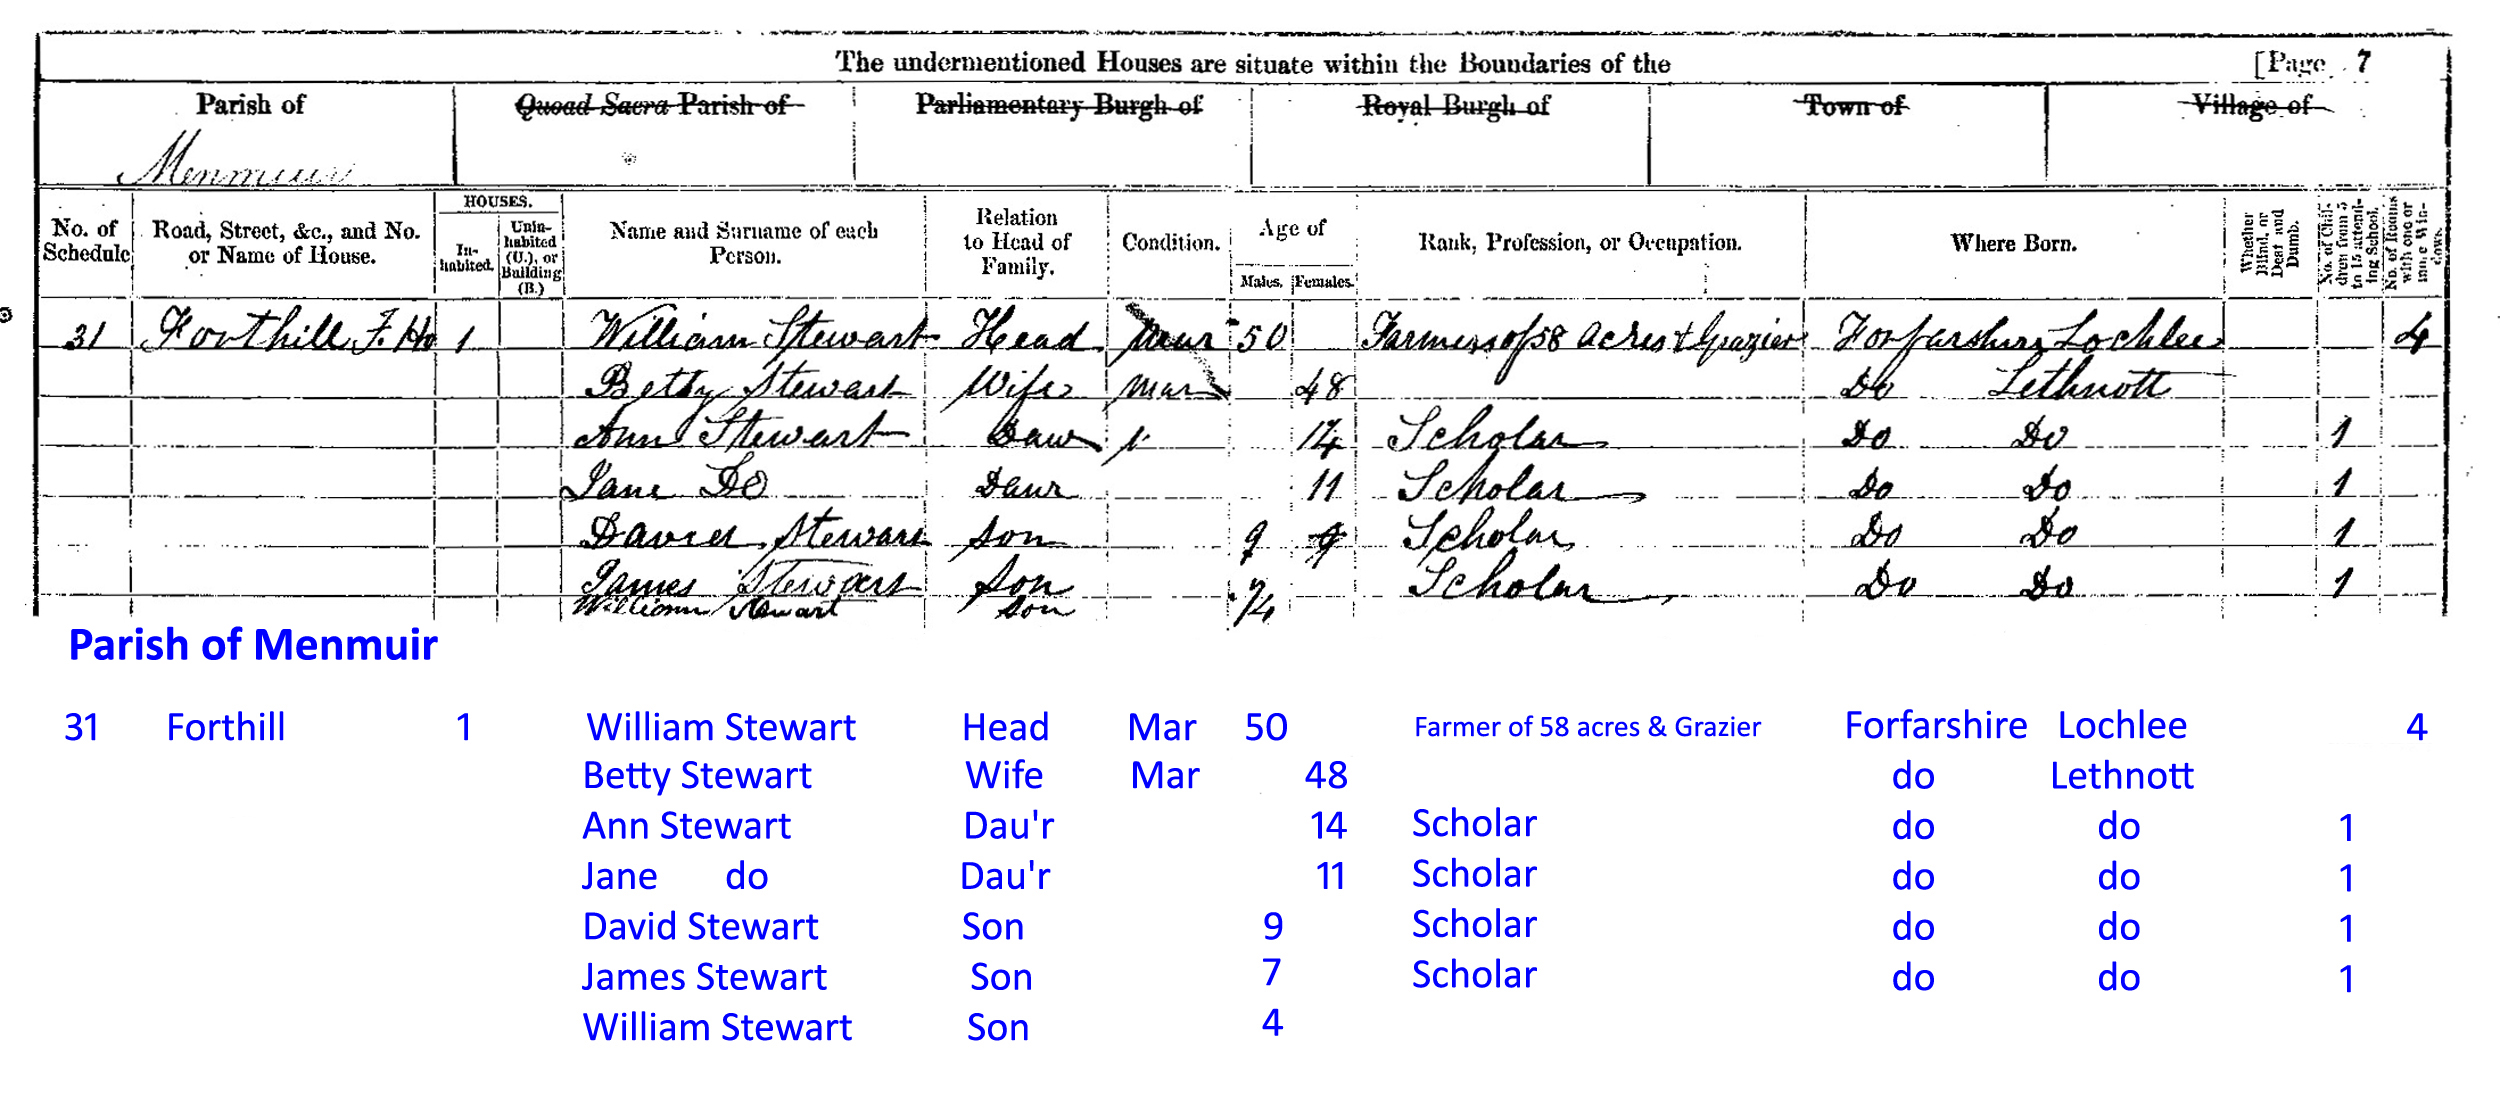 The undermentioned Houses are situate within the Boundaries of the [Page 7
Parish of Quoad Sacra Parish of Parliamentary Burgh of Royal Burgh of Town of Village of
Menmuir
No. of Schedule Road, Street, &c., and No. or Name of House. HOUSES. In-habited. Unin-habited (U.), or Building (B.) Name and Surname of each Person. Relation to Head of Family. Condition. Age of Males. Females. Rank, Profession, or Occupation. Where Born. Whether Blind, or Deaf and Dumb. No. of Chil-dren from 5 to 15 attend-ing School. No. of Rooms with one or more Win-dows.
31 Forthill F. Ho 1 William Stewart Head Mar 50 Farmer of 58 Acres & Grazier Forfarshire Lochlee 4
Betty Stewart Wife Mar 48 Do Lethnott
Ann Stewart Daur 14 Scholar Do Do 1
Jane Do Daur 11 Scholar Do Do 1
David Stewart Son 9 9 Scholar Do Do 1
James Stewart Son 7 Scholar Do Do 1
William Stewart Son 4
Parish of Menmuir
31 Forthill 1 William Stewart Head Mar 50 Farmer of 58 acres & Grazier Forfarshire Lochlee 4
Betty Stewart Wife Mar 48 do Lethnott
Ann Stewart Dau'r 14 Scholar do do 1
Jane do Dau'r 11 Scholar do do 1
David Stewart Son 9 Scholar do do 1
James Stewart Son 7 Scholar do do 1
William Stewart Son 4